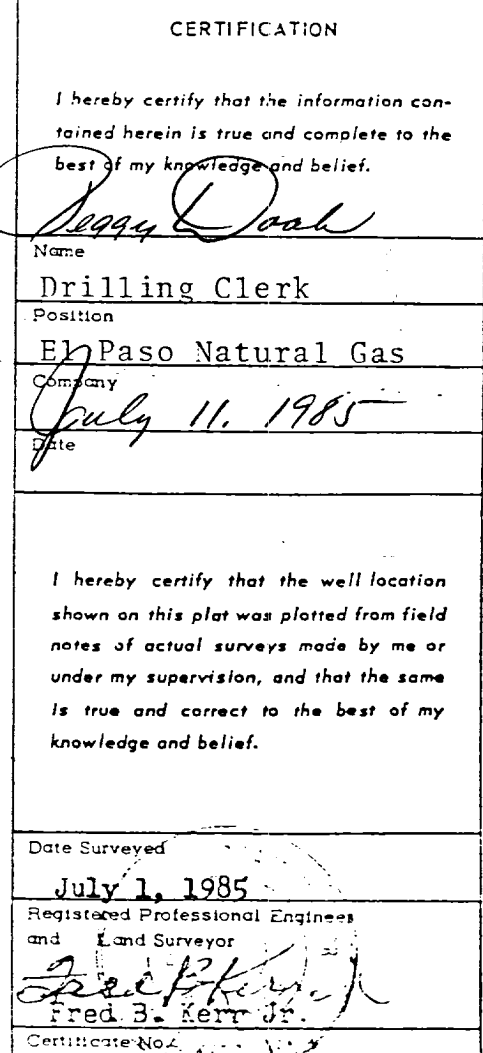 CERTIFICATION
I hereby certify that the information con-
tained herein is true and complete to the
best of my knowledge and belief.
Peggy Doak
Name
Drilling Clerk
Position
El Paso Natural Gas
Company
July 11, 1985
Date
I hereby certify that the well location
shown on this plat was plotted from field
notes of actual surveys made by me or
under my supervision, and that the same
is true and correct to the best of my
knowledge and belief.
Date Surveyed
July 1, 1985
Registered Professional Engineer
and Land Surveyor
Fred B. Kerr Jr.
Fred B. Kerr Jr.
Certificate No.